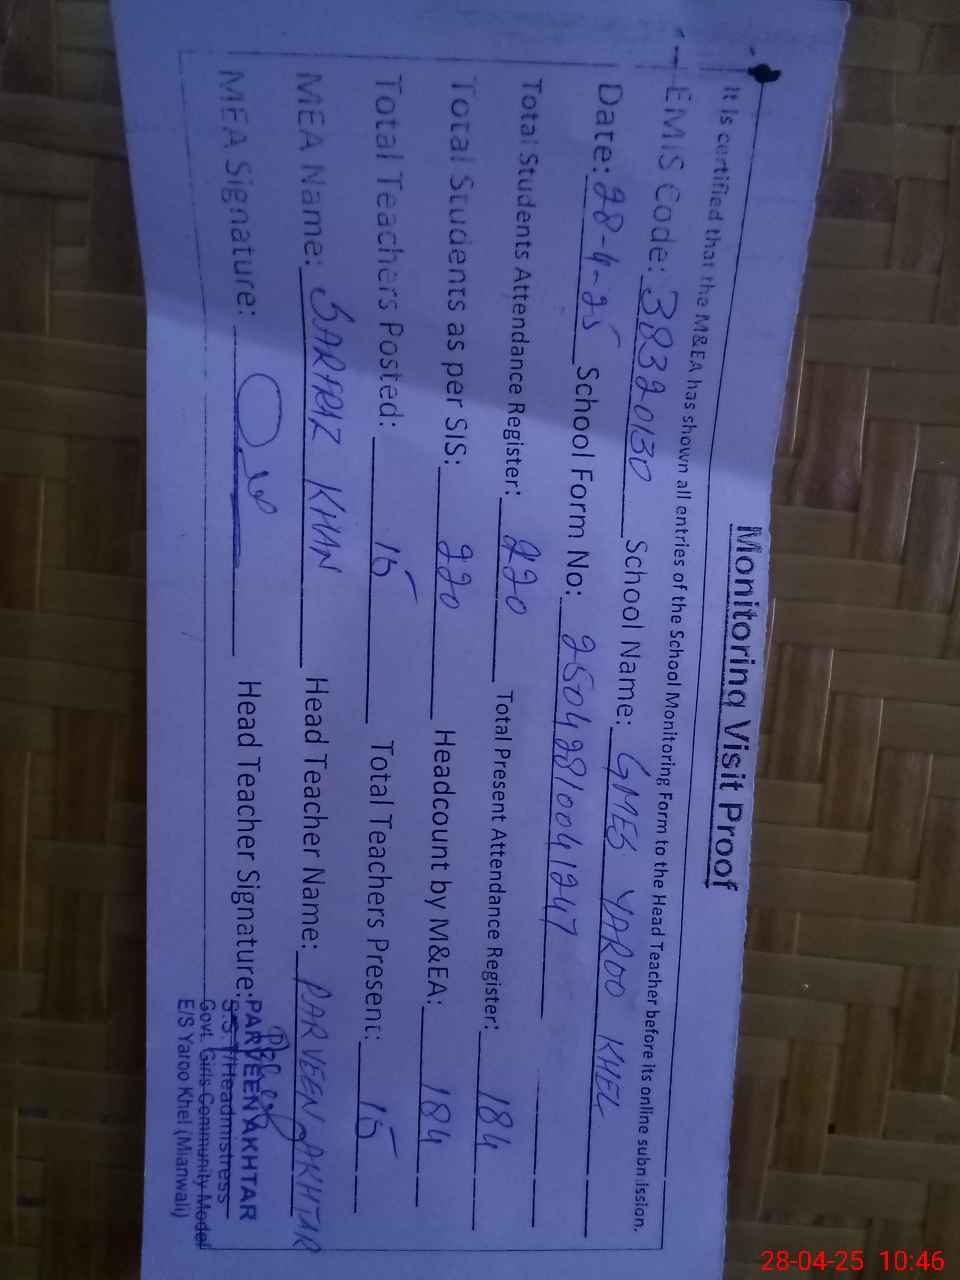 Monitoring Visit Proof
It is certified that the M&EA has shown all entries of the School Monitoring Form to the Head Teacher before its online submission.
EMIS Code: 38320130 School Name: GMES YAROO KHEL
Date: 28-4-25 School Form No: 25042810041247
Total Students Attendance Register: 220 Total Present Attendance Register: 184
Total Students as per SIS: 220 Headcount by M&EA: 184
Total Teachers Posted: 15 Total Teachers Present: 15
MEA Name: SARFRAZ KHAN Head Teacher Name: PARVEEN AKHTAR
MEA Signature: Head Teacher Signature:
PARVEEN AKHTAR
S.S.T/Headmistress
Govt. Girls Community Model
E/S Yaroo Khel (Mianwali)
28-04-25 10:46